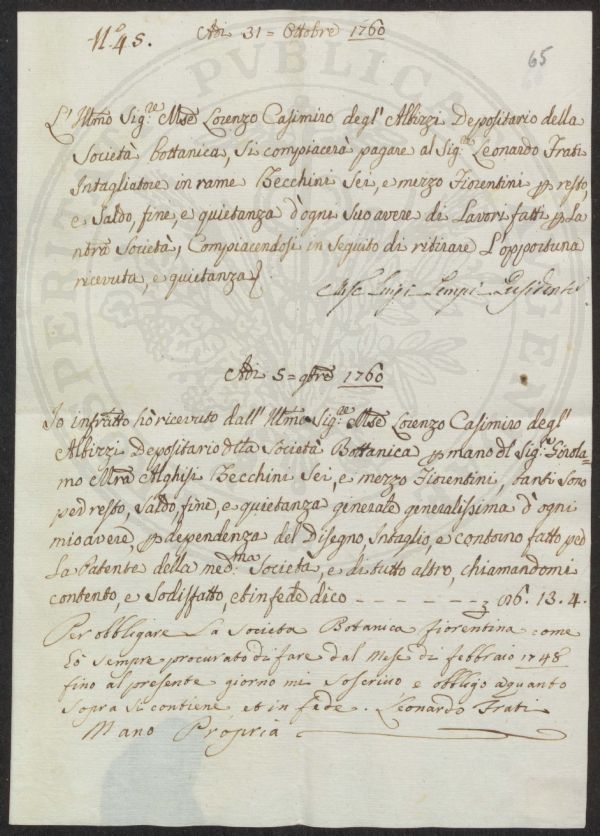 N.° 45.
Adi 31 = Ottobre 1760
65
L'Illmo Sig.re Mse Lorenzo Casimiro degl' Albizzi Depositario della
Società Bottanica, si compiacerà pagare al Sig.re Leonardo Frati
Intagliatore in rame Zecchini Sei, e mezzo Fiorentini p resto,
e Saldo, fine, e quietanza d'ogni suo avere di Lavori fatti p La
ntra Società, Compiacendosi in seguito di ritirare L'opportuna
ricevuta, e quietanza
Mse Luigi Tempi Presidente
Adi 5 = 9bre 1760
Io infratto hò ricevuto dall' Illmo Sig.re Mse Lorenzo Casimiro degl'
Albizzi Depositario della Società Bottanica p mano dl Sig.r Girola-
mo Mra Alghisi Zecchini Sei, e mezzo Fiorentini, tanti sono
ped resto, Saldo, fine, e quietanza generale generalissima d'ogni
mio avere, p dependenza del Disegno, Intaglio, e contorno fatto ped
La Patente della med.ma Società, e di tutto altro, chiamandomi
contento, e Sodisfatto, et in fede dico - - - - - - - 6. 13. 4.
Per obbligare La Societa Botanica fiorentina come
ò sempre procurato di fare dal Mese di febbraio 1748
fino al presente giorno mi soscrivo e obbligo a quanto
sopra si contiene et in fede. Leonardo Frati
Mano Propria
PVBLICA
PROSPERITATI